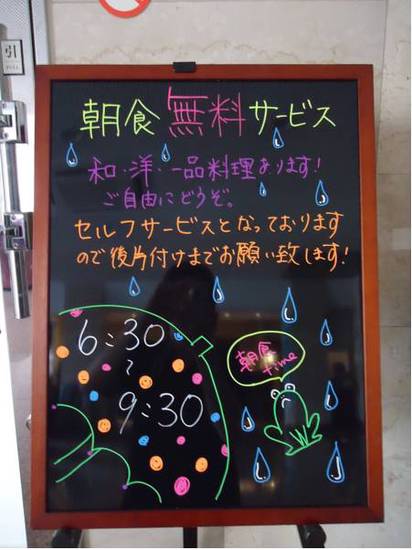 引
朝食無料サービス
和・洋・一品料理あります!
ご自由にどうぞ。
セルフサービスとなっております
ので後片付けまでお願い致します!
6:30
~
9:30
朝食
time